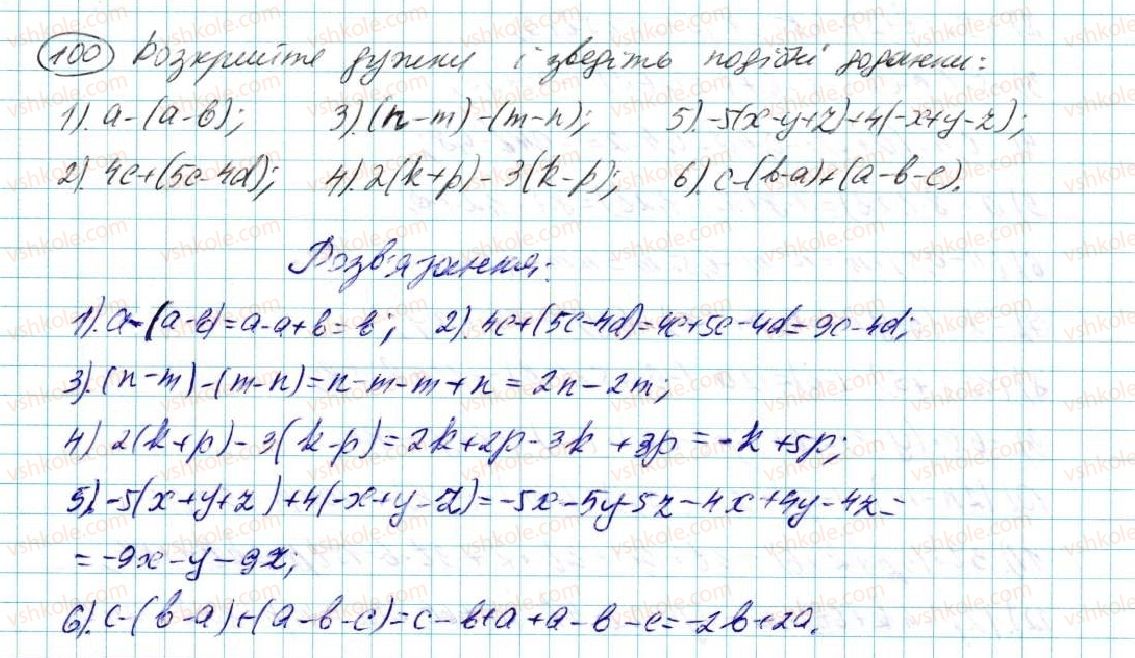 100 Розкрийте дужки і зведіть подібні доданки:
1). a-(a-b); 3).(n-m)-(m-n); 5).-5(x-y+z)+4(-x+y-z);
2). 4c+(5c-4d); 4).2(k+p)-3(k-p); 6). c-(b-a)+(a-b-c).
Розв'язання:
1). a-(a-b)=a-a+b=b; 2). 4c+(5c-4d)=4c+5c-4d=9c-4d;
3). (n-m)-(m-n)=n-m-m+n=2n-2m;
4) 2(k+p)-3(k-p)=2k+2p-3k+3p=-k+5p;
5).-5(x+y+z)+4(-x+y-z)=-5x-5y-5z-4x+4y-4z=
=-9x-y-9z;
6). c-(b-a)+(a-b-c)=c-b+a+a-b-c=-2b+2a.